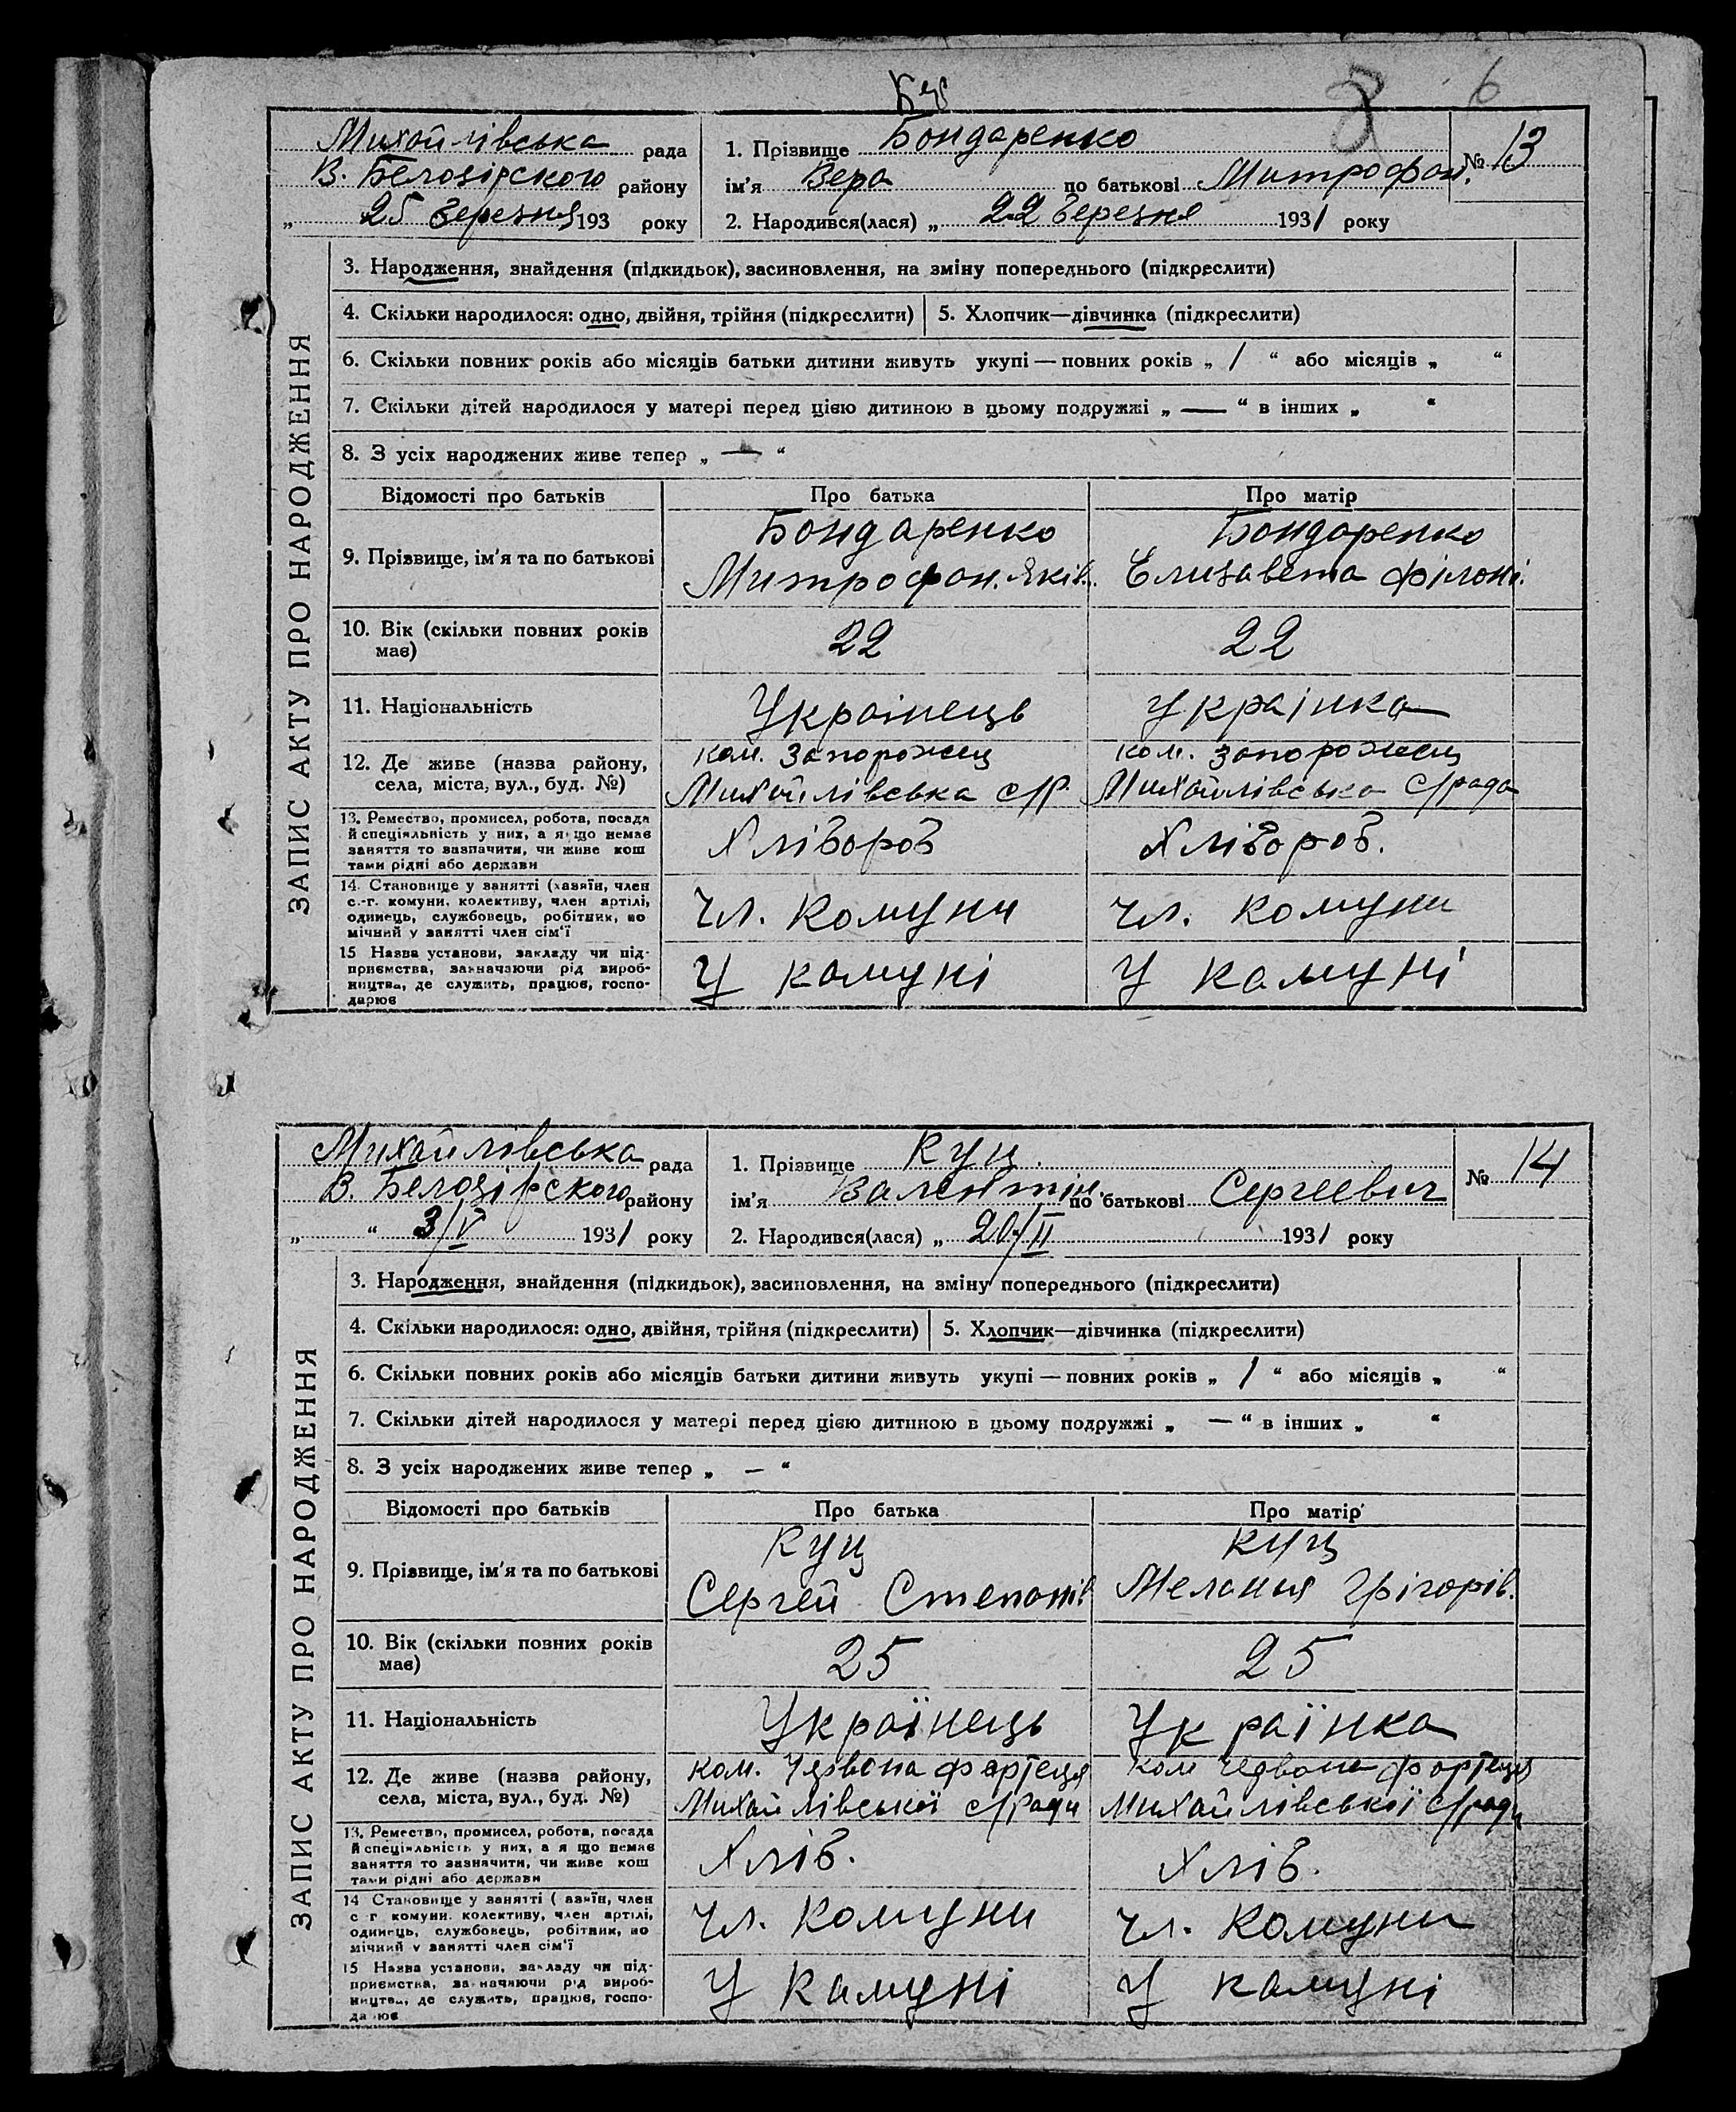 6
Михайлівська рада
В. Белозірского району
„ 25 березня 193 року
1. Прізвище Бондаренко
ім'я Вера по батькові Митрофан.
2. Народився(лася) „ 22 березня 1931 року
№ 13
ЗАПИС АКТУ ПРО НАРОДЖЕННЯ
3. Народження, знайдення (підкидьок), засиновлення, на зміну попереднього (підкреслити)
4. Скільки народилося: одно, двійня, трійня (підкреслити) 5. Хлопчик—дівчинка (підкреслити)
6. Скільки повних років або місяців батьки дитини живуть укупі — повних років „ 1 “ або місяців „ “
7. Скільки дітей народилося у матері перед цією дитиною в цьому подружжі „ — “ в інших „ “
8. З усіх народжених живе тепер „ — “
Відомості про батьків Про батька Про матір
9. Прізвище, ім'я та по батькові
Бондаренко
Митрофан. Яків.
Бондаренко
Елизавета Філоні.
10. Вік (скільки повних років
має)
22 22
11. Національність Українець Українка
12. Де живе (назва району,
села, міста, вул., буд. №)
ком. Запорожец
Михайлівська с/р.
ком. Запорожец
Михайлівська с/рада
13. Ремество, промисел, робота, посада
й спеціяльність у них, а якщо немає
заняття то зазначити, чи живе кош
тами рідні або держави
Хлібороб Хлібороб.
14. Становище у занятті (хазяїн, член
с.-г. комуни, колективу, член артілі,
одинець, службовець, робітник, по
мічний у занятті член сім'ї
чл. комуни чл. комуни
15 Назва установи, закладу чи під-
приємства, зазначаючи рід вироб-
ництва, де служить, працює, госпо-
дарює
У комуні У комуні
Михайлівська рада
В. Белозірского району
„ “ 3/V 1931 року
1. Прізвище Куц.
ім'я Валентін по батькові Сергеевич
2. Народився(лася) „ 20/II 1931 року
№ 14
ЗАПИС АКТУ ПРО НАРОДЖЕННЯ
3. Народження, знайдення (підкидьок), засиновлення, на зміну попереднього (підкреслити)
4. Скільки народилося: одно, двійня, трійня (підкреслити) 5. Хлопчик—дівчинка (підкреслити)
6. Скільки повних років або місяців батьки дитини живуть укупі — повних років „ 1 “ або місяців „ “
7. Скільки дітей народилося у матері перед цією дитиною в цьому подружжі „ — “ в інших „ “
8. З усіх народжених живе тепер „ — “
Відомості про батьків Про батька Про матір
9. Прізвище, ім'я та по батькові
Куц
Сергей Степанів
Куц
Мелания Грігорів.
10. Вік (скільки повних років
має)
25 25
11. Національність Українець Українка
12. Де живе (назва району,
села, міста, вул., буд. №)
ком. Червона фортеця
Михайлівської с/ради
ком Червона фортеця
Михайлівської с/ради
13. Ремество, промисел, робота, посада
й спеціяльність у них, а якщо немає
заняття то зазначити, чи живе кош
тами рідні або держави
Хліб. Хліб.
14 Становище у занятті (хазяїн, член
с г комуни. колективу, член артілі,
одинець, службовець, робітник, по
мічний у занятті член сім'ї
чл. комуни чл. комуни
15 Назва установи, закладу чи під-
приємства, зазначаючи рід вироб-
ництва, де служить, працює, госпо-
дарює
У комуні У комуні